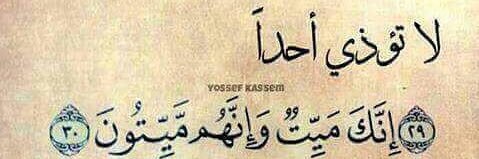 لا تؤذي أحداً
YOSSEF KASSEM
٢٩ إِنَّكَ مَيِّتٌ وَإِنَّهُم مَّيِّتُونَ ٣٠